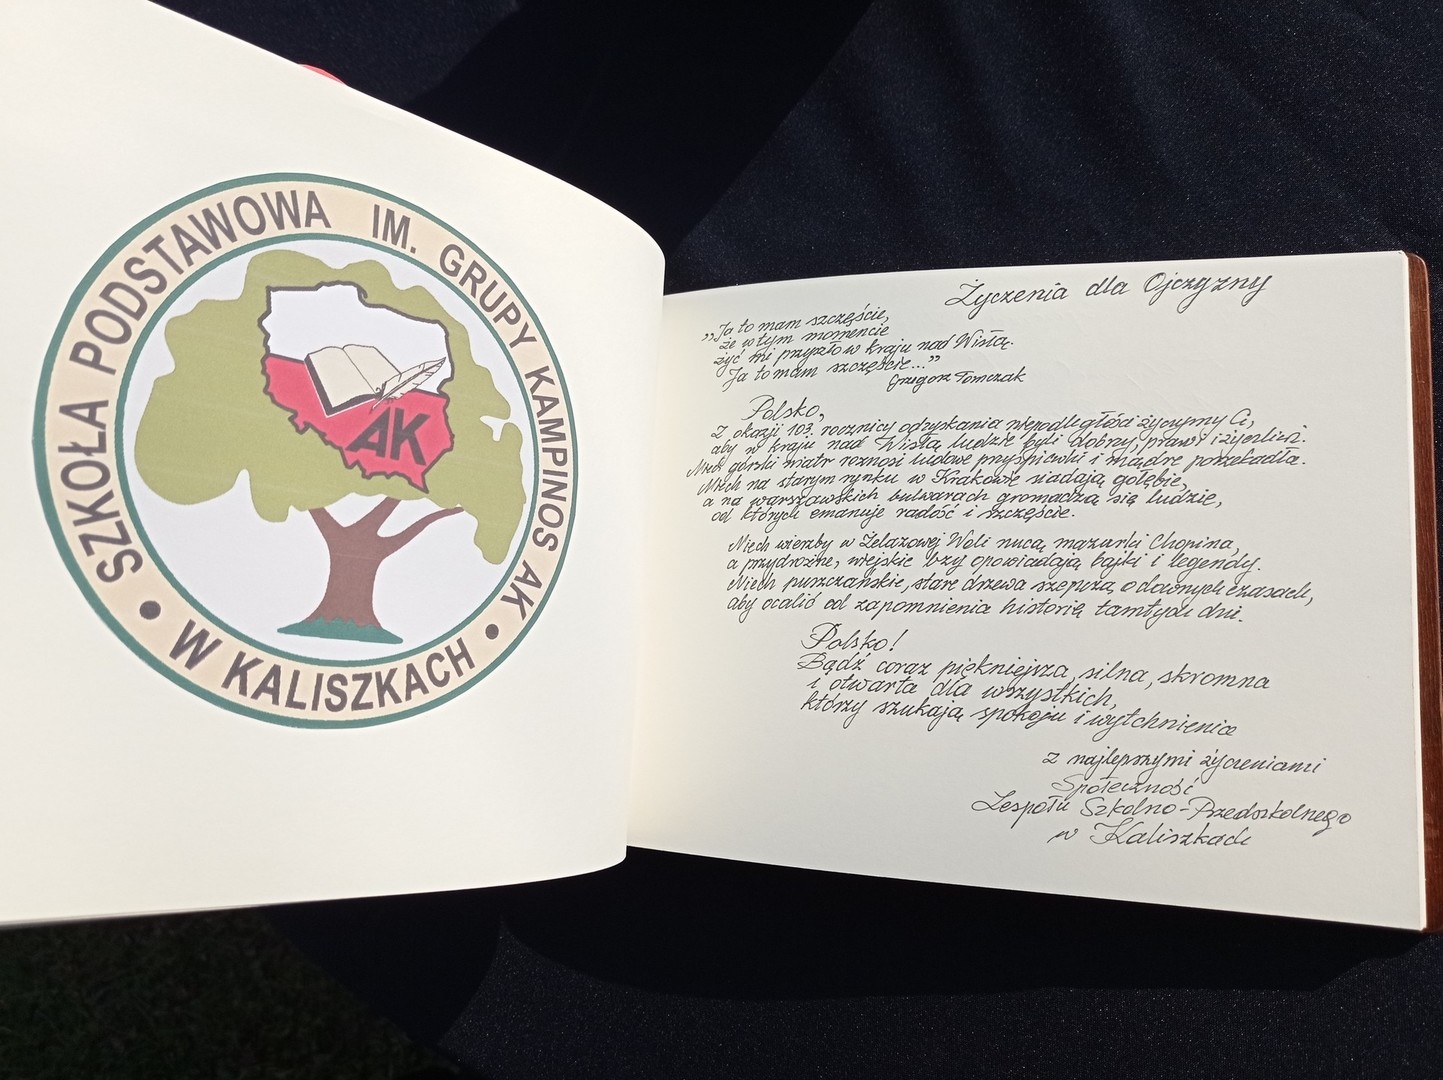 SZKOŁA PODSTAWOWA IM. GRUPY KAMPINOS AK
W KALISZKACH
AK
Życzenia dla Ojczyzny
„Ja to mam szczęście,
że w tym momencie
żyć mi przyszło w kraju nad Wisłą.
Ja to mam szczęście..."
Grzegorz Tomczak
Polsko,
Z okazji 103 rocznicy odzyskania niepodległości życzymy Ci,
aby w kraju nad Wisłą ludzie byli dobrzy, prawi i życzliwi.
Niech górski wiatr roznosi ludowe przyśpiewki i mądre porzekadła.
Niech na starym rynku w Krakowie siadają gołębie,
a na warszawskich bulwarach gromadzą się ludzie,
od których emanuje radość i szczęście.
Niech wierzby w Żelazowej Woli nucą mazurki Chopina,
a przydrożne, wiejskie bzy opowiadają bajki i legendy.
Niech puszczańskie, stare drzewa szepczą o dawnych czasach,
aby ocalić od zapomnienia historię tamtych dni.
Polsko!
Bądź coraz piękniejsza, silna, skromna
i otwarta dla wszystkich,
którzy szukają spokoju i wytchnienia
z najlepszymi życzeniami
Społeczność
Zespołu Szkolno-Przedszkolnego
w Kaliszkach